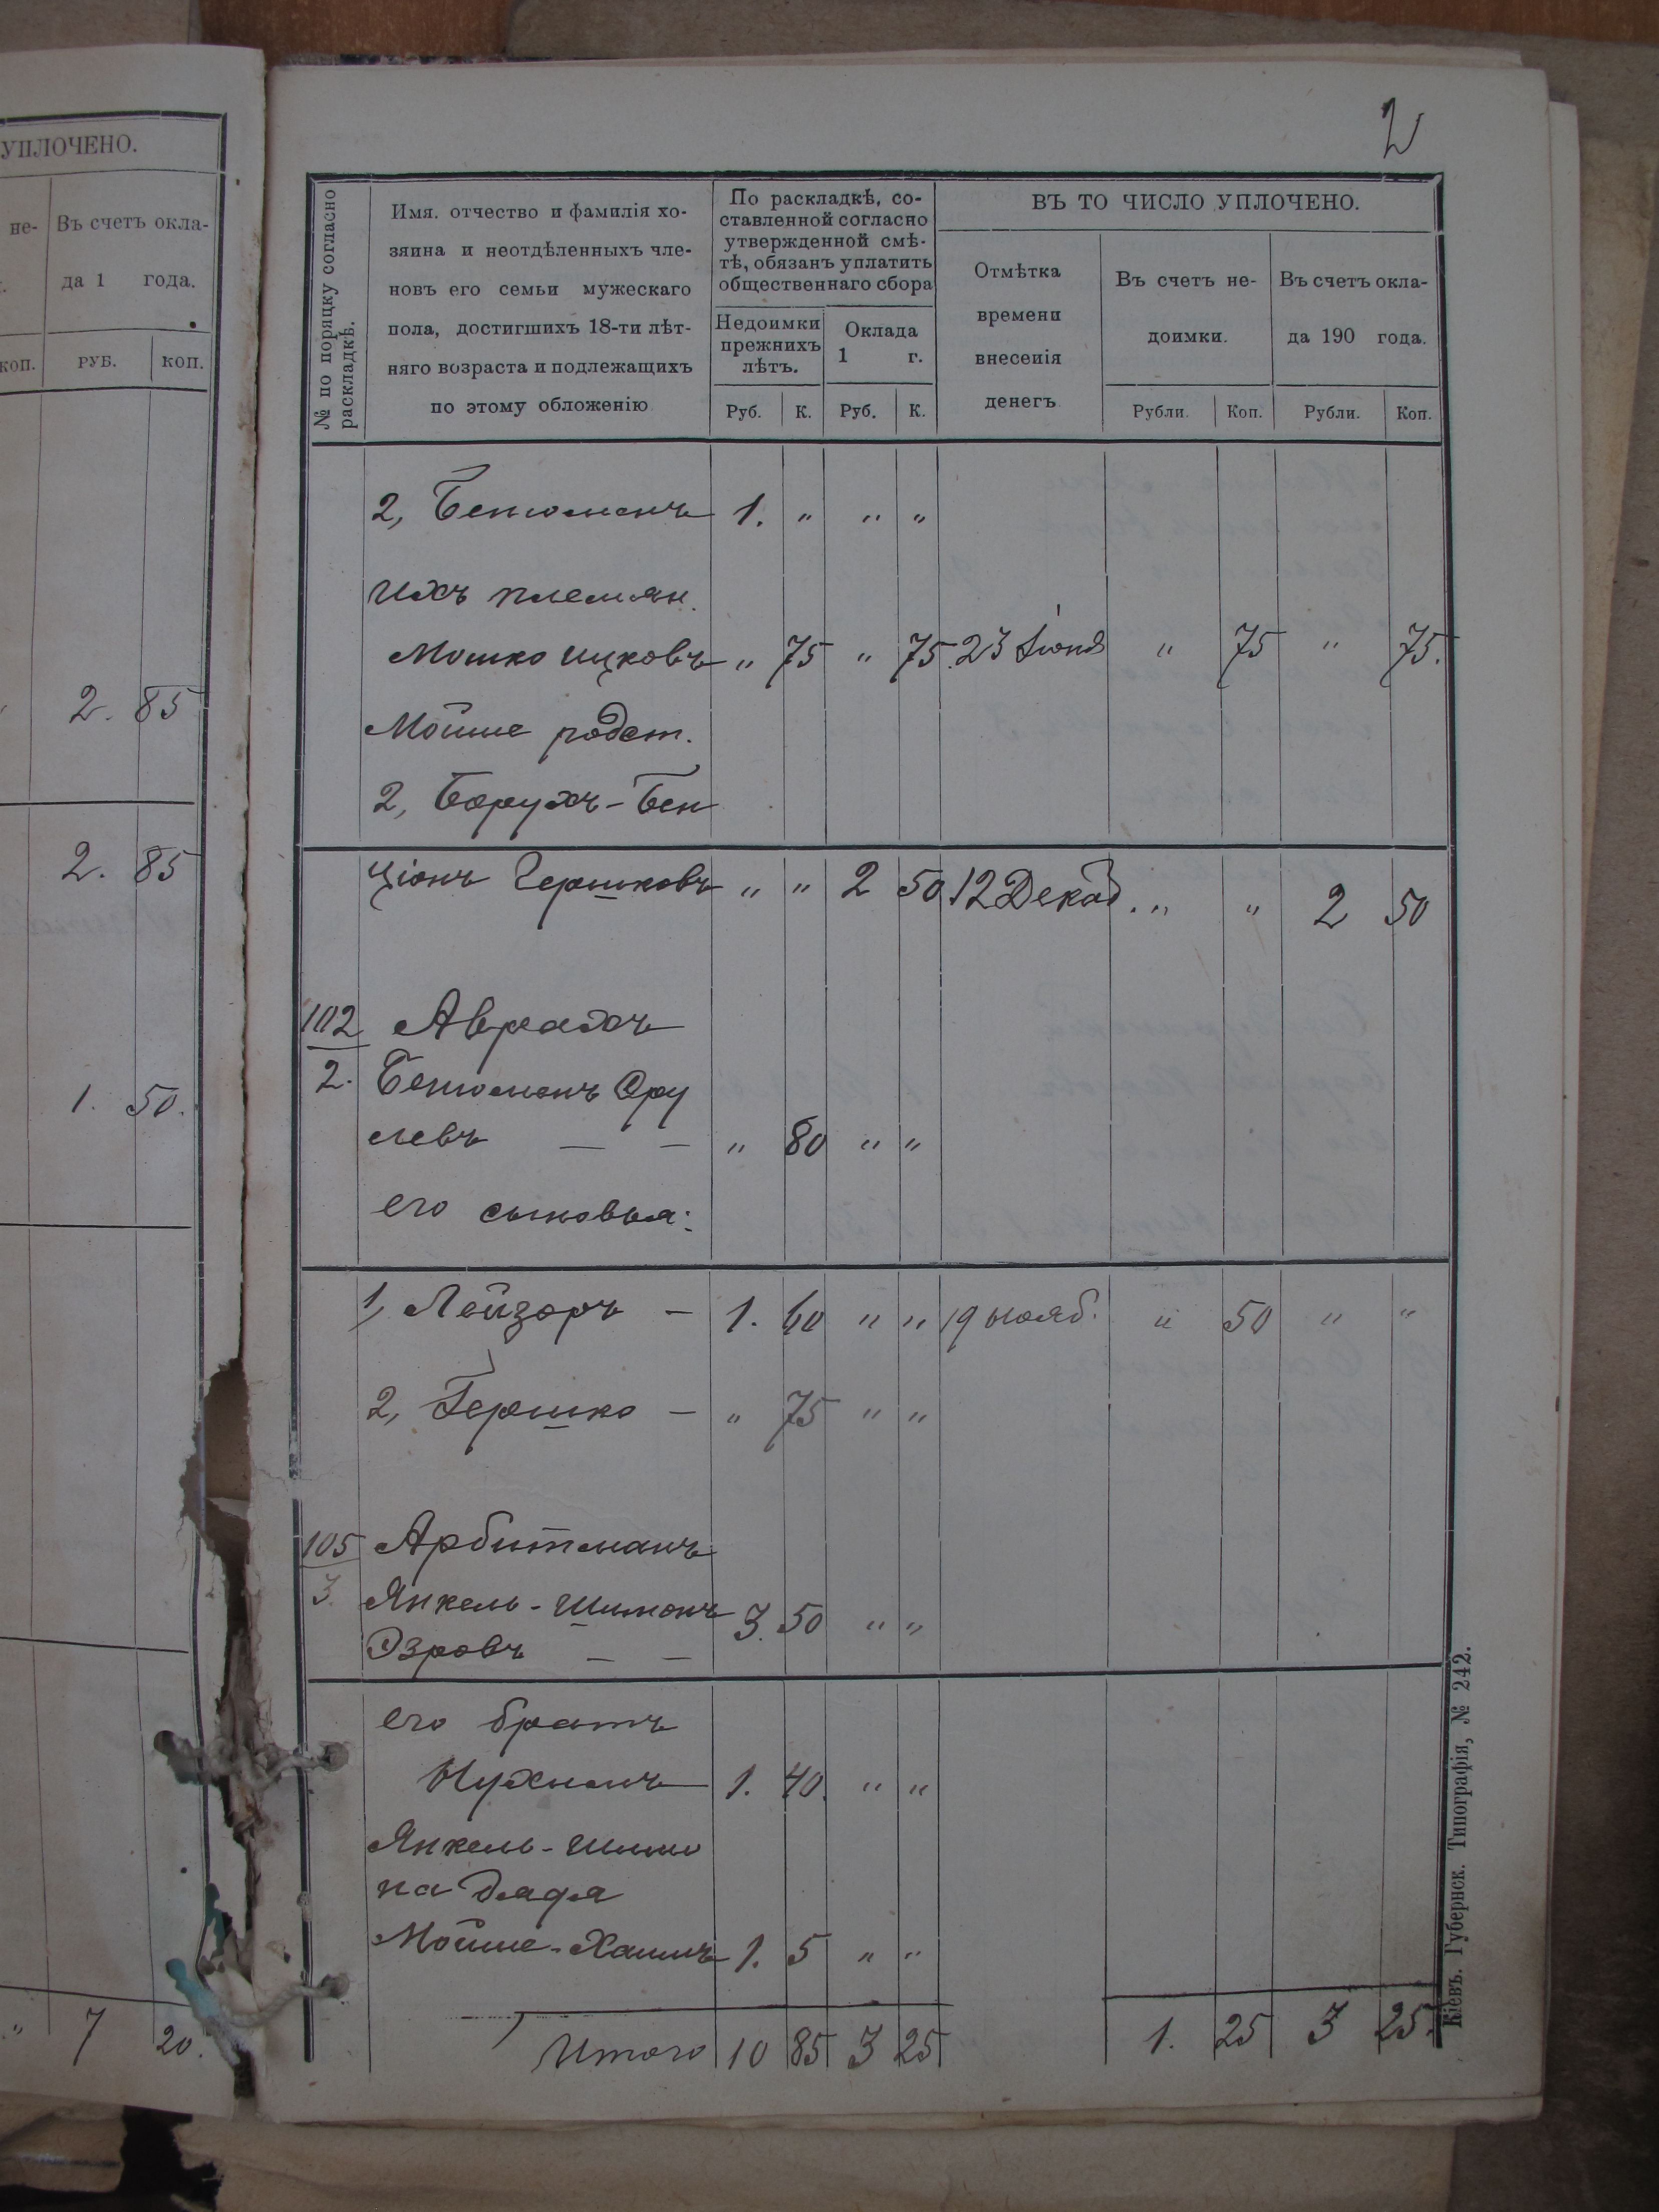 УПЛОЧЕНО.
не- Въ счетъ окла-
да 1 года.
коп. РУБ. коп.
2. 85
2. 85
1. 50.
" 7 20.
2
№ по поряцку согласно
раскладкѣ.
Имя. отчество и фамилія хо-
зяина и неотдѣленныхъ чле-
новъ его семьи мужескаго
пола, достигшихъ 18-ти лѣт-
няго возраста и подлежащихъ
по этому обложенію
По раскладкѣ, со-
ставленной согласно
утвержденной смѣ-
тѣ, обязанъ уплатить
общественнаго сбора
Недоимки
прежнихъ
лѣтъ.
Оклада
1 г.
Руб. К. Руб. К.
ВЪ ТО ЧИСЛО УПЛОЧЕНО.
Отмѣтка
времени
внесенія
денегъ
Въ счетъ не-
доимки.
Въ счетъ окла-
да 190 года.
Рубли. Коп. Рубли. Коп.
2, Бенюменъ 1. " " "
Ихъ племян.
Мошко Ицковъ " 75 " 75 23 Іюня " 75 " 75.
Мойше родст.
2, Борухъ-Бен
ціонъ Гершковъ " " 2 50 12 Декаб. " " 2 50
102 Аврахъ
2. Бенюменъ Сру
левъ — — " 80 " "
его сыновья:
1, Лейзоръ — 1. 60 " " 19 нояб. " 50 " "
2, Гершко — " 75 " "
105 Арбитманъ
3. Янкель-Шимонъ 3. 50 " "
Озровъ — —
его братъ
Нухимъ 1. 40. " "
Янкель-Шимо
на дядя
Мойше-Хаимъ 1. 5 " "
Итого 10 85 3 25 1. 25 3 25.
Кіевъ. Губернск. Типографія, № 242.